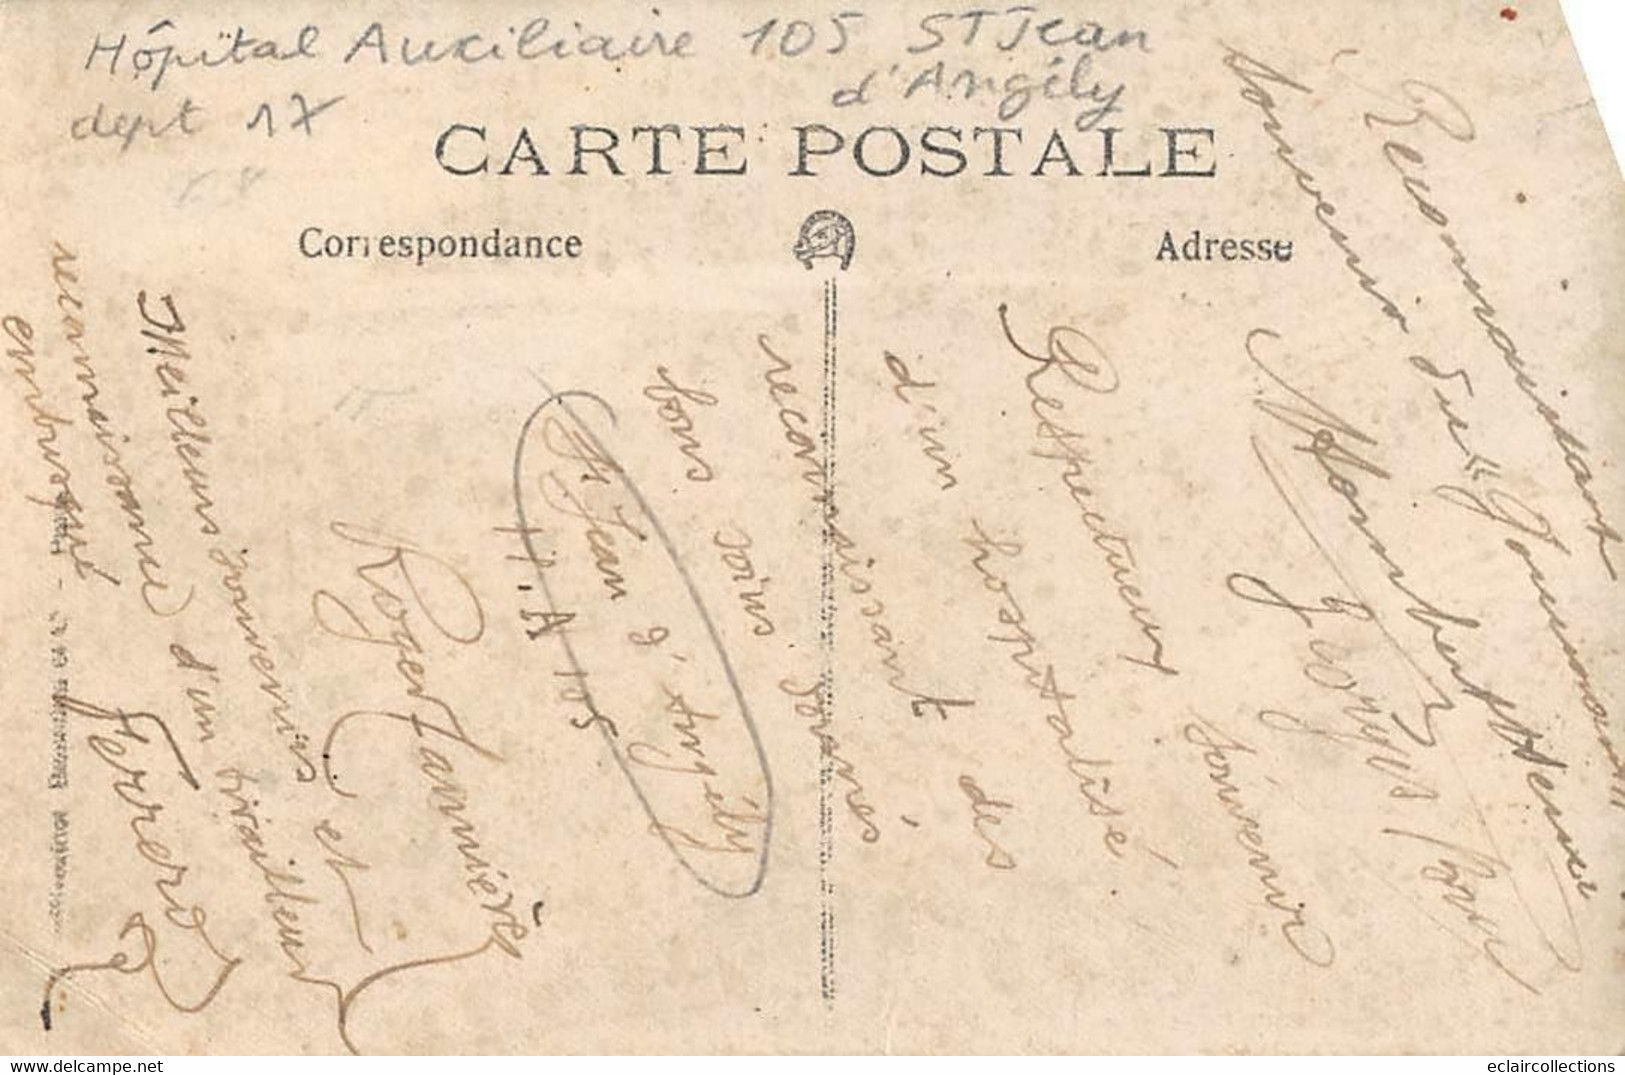 Hôpital Auxiliaire 105 ST Jean
d'Angély
dept 17
CARTE POSTALE
Correspondance
Adresse
Reconnaissant
souvenir du "
Georges
Respectueux souvenir
d'un hospitalisé
reconnaissant des
bons soins donnés
St Jean d'Angély
H. A 105
Roger Jannière
Meilleurs souvenirs et
reconnaissance d'un tirailleur
embusqué
Ferrero
eclaircollections